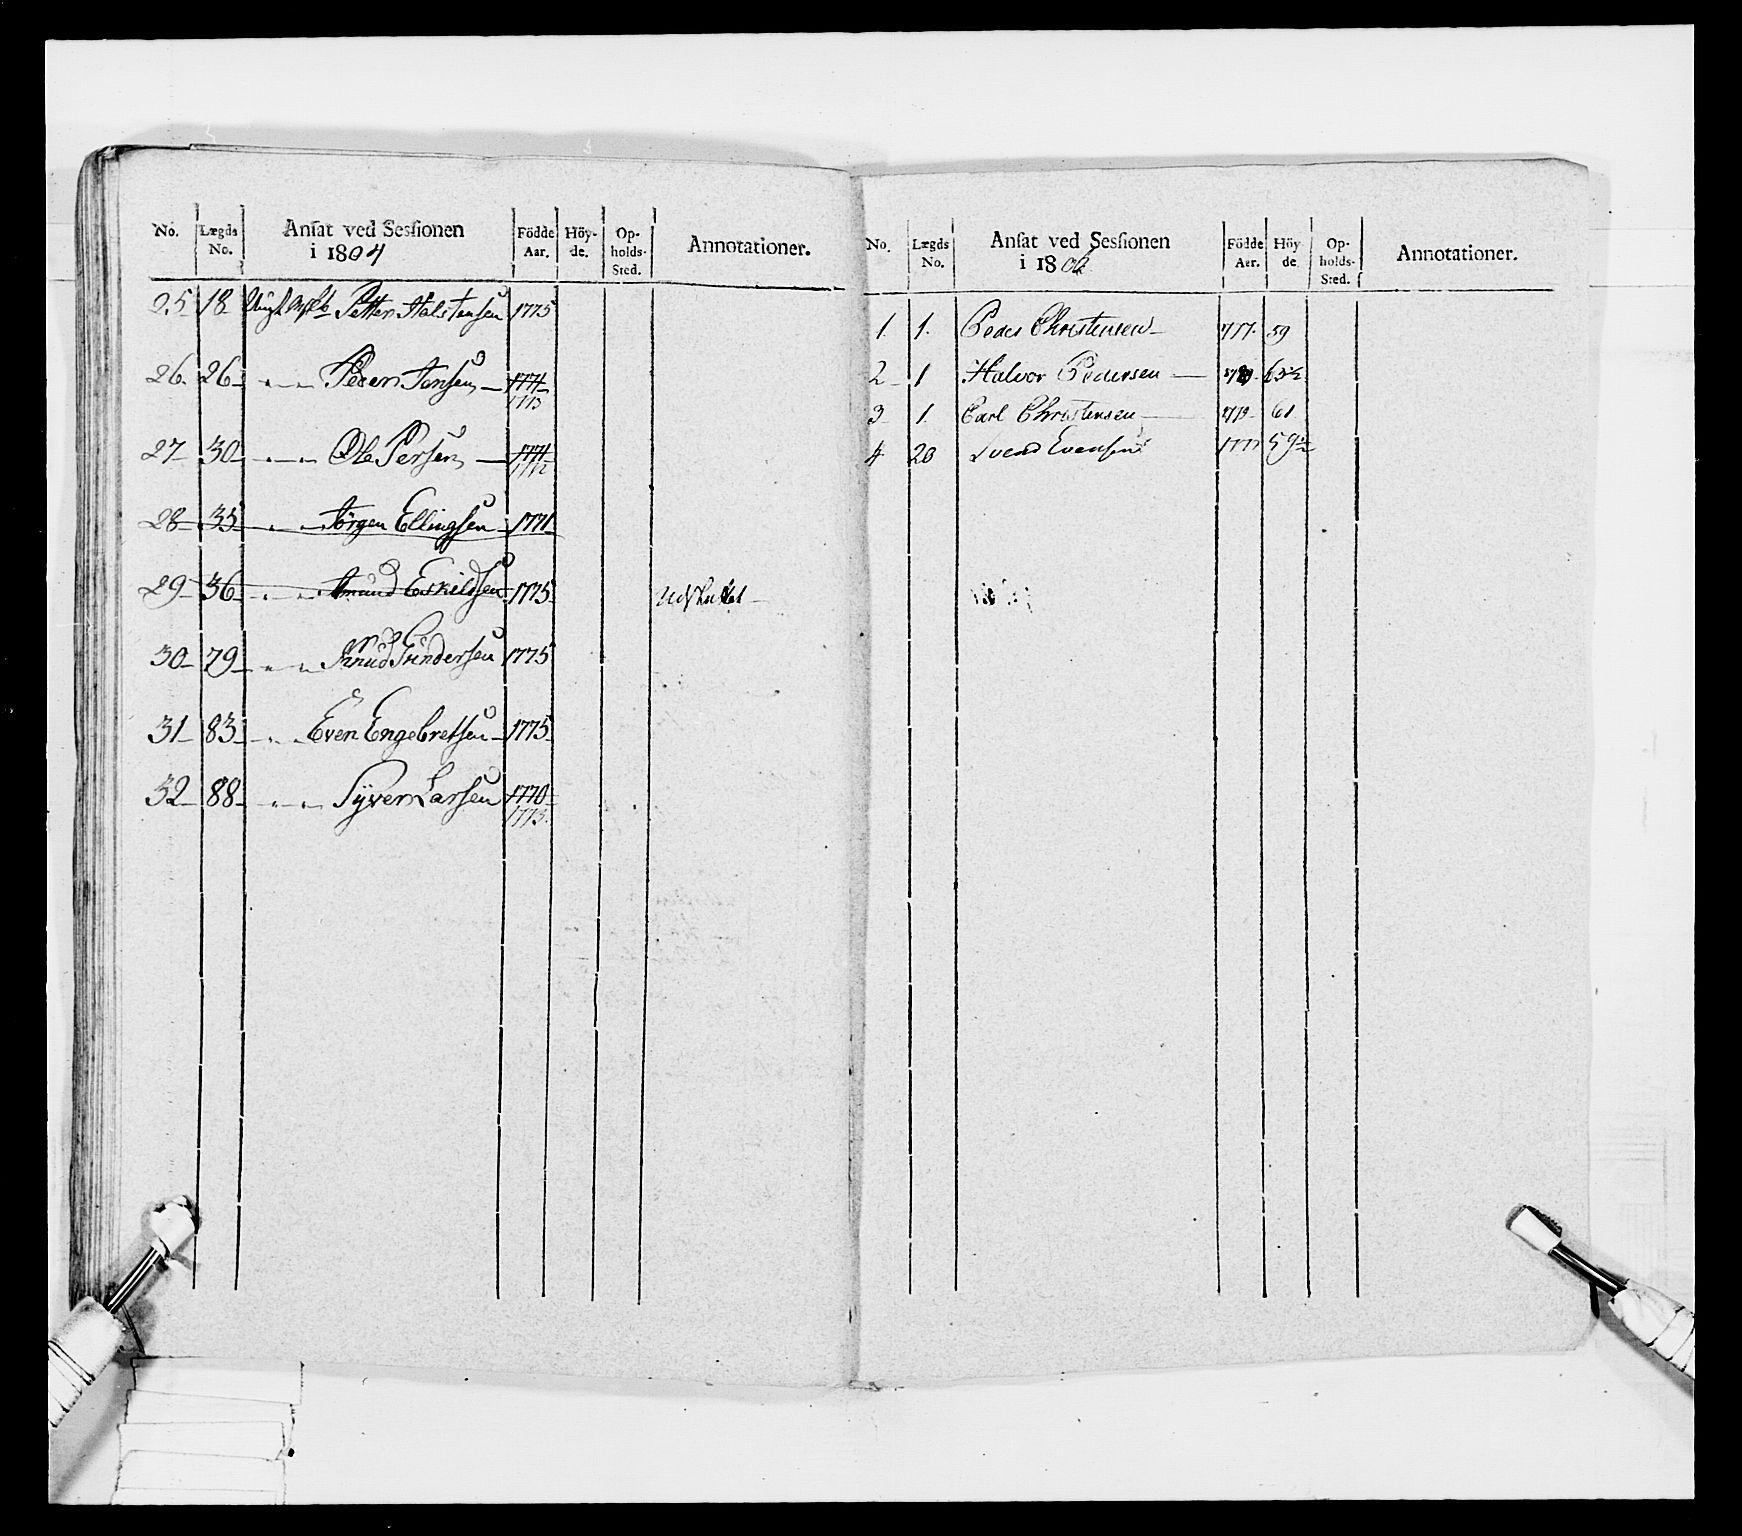 No. Lægds No. Ansat ved Sessionen i 1804 Födde Aar. Höy-de. Op-holds-Sted. Annotationer.
25 18 Petter Halstensen 1775
26 26 " " Peder Jensen 1771 1773
27 30 " " Ole Persen 1771 1772
28 35 " " Jörgen Ellingsen 1771
29 36 " " Amund Eskildsen 1775 Udsludet
30 79 " " Knud Gundersen 1775
31 83 " " Even Engebretsen 1775
32 88 " " Syver Larsen 1770 1773
No. Lægds No. Ansat ved Sessionen i 1806 Födde Aar. Höy de. Op-holds-Sted. Annotationer.
1 1. Peder Christensen 59
2 1 Halvor Pedersen 63½
3 1. Carl Christensen 61
4 20 Svend Evensen 1777